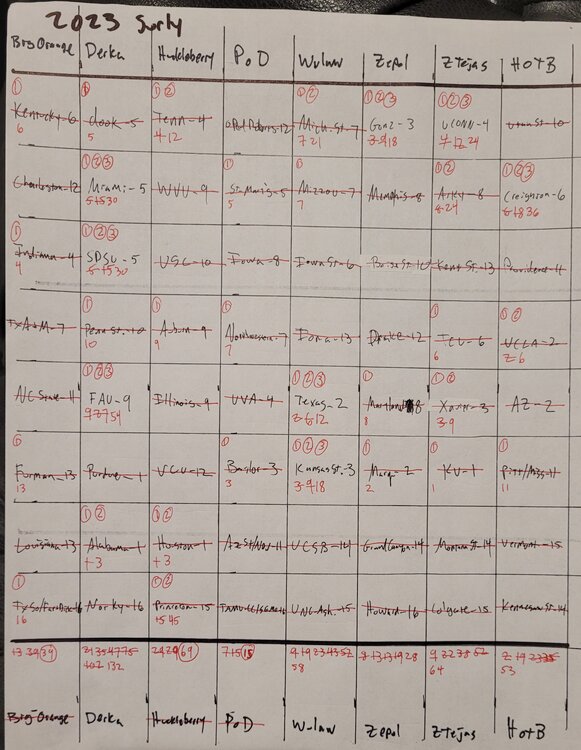 2023 Surly
Big Orange Derka Huckleberry PoD Wulaw Zepol ZTejas HOTB
① ① ①② ①② ①②③ ①②③
Kentucky-6 Duke-5 Tenn-4 Mich.St-7 Gonz-3 UCONN-4 Utah St-10
6 5 4 12 7 21 3 9 18 4 12 24
①②③ ① ① ①② ①②③
Charleston-12 Miami-5 WVU-9 St. Mary's-5 Mizzou-7 Memphis-8 Arky-8 Creighton-6
5 15 30 5 7 8 24 6 18 36
① ①②③
Indiana-4 SDSU-5 USC-10 Iowa-8 Iowa St-6 Boise St-10 Kent St-13 Providence-11
4 5 15 30
① ① ① ① ①②
TxA&M-7 Penn St.-10 Auburn-9 Northwestern-7 Iona-13 Drake-12 TCU-6 UCLA-2
10 9 7 6 2 6
①②③ ①②③ ① ①②
NC State-11 FAU-9 Illinois-9 UVA-4 Texas-2 Maryland-8 Xavier-3 AZ-2
9 27 54 2 6 12 8 3 9
① ① ①②③ ① ① ①
Furman-13 Purdue-1 VCU-12 Baylor-3 Kansas St.-3 Marq-2 KU-1 Pitt/Miss-11
13 3 3 9 18 2 1 11
①② ①②
Louisiana-13 Alabama-1 Houston-1 AzSt/Nev-11 UCSB-14 Grand Canyon-14 Montana St-14 Vermont-15
1 3 1 3
① ①②
TxSo/FarDick-16 Nor Ky-16 Princeton-15 UNC Ash.-15 Howard-16 Colgate-15 Kennesaw St-14
16 15 45
13 39 39 69 7 15 15
132 58 64 53
Big Orange Derka Huckleberry PoD Wulaw Zepol ZTejas HOTB